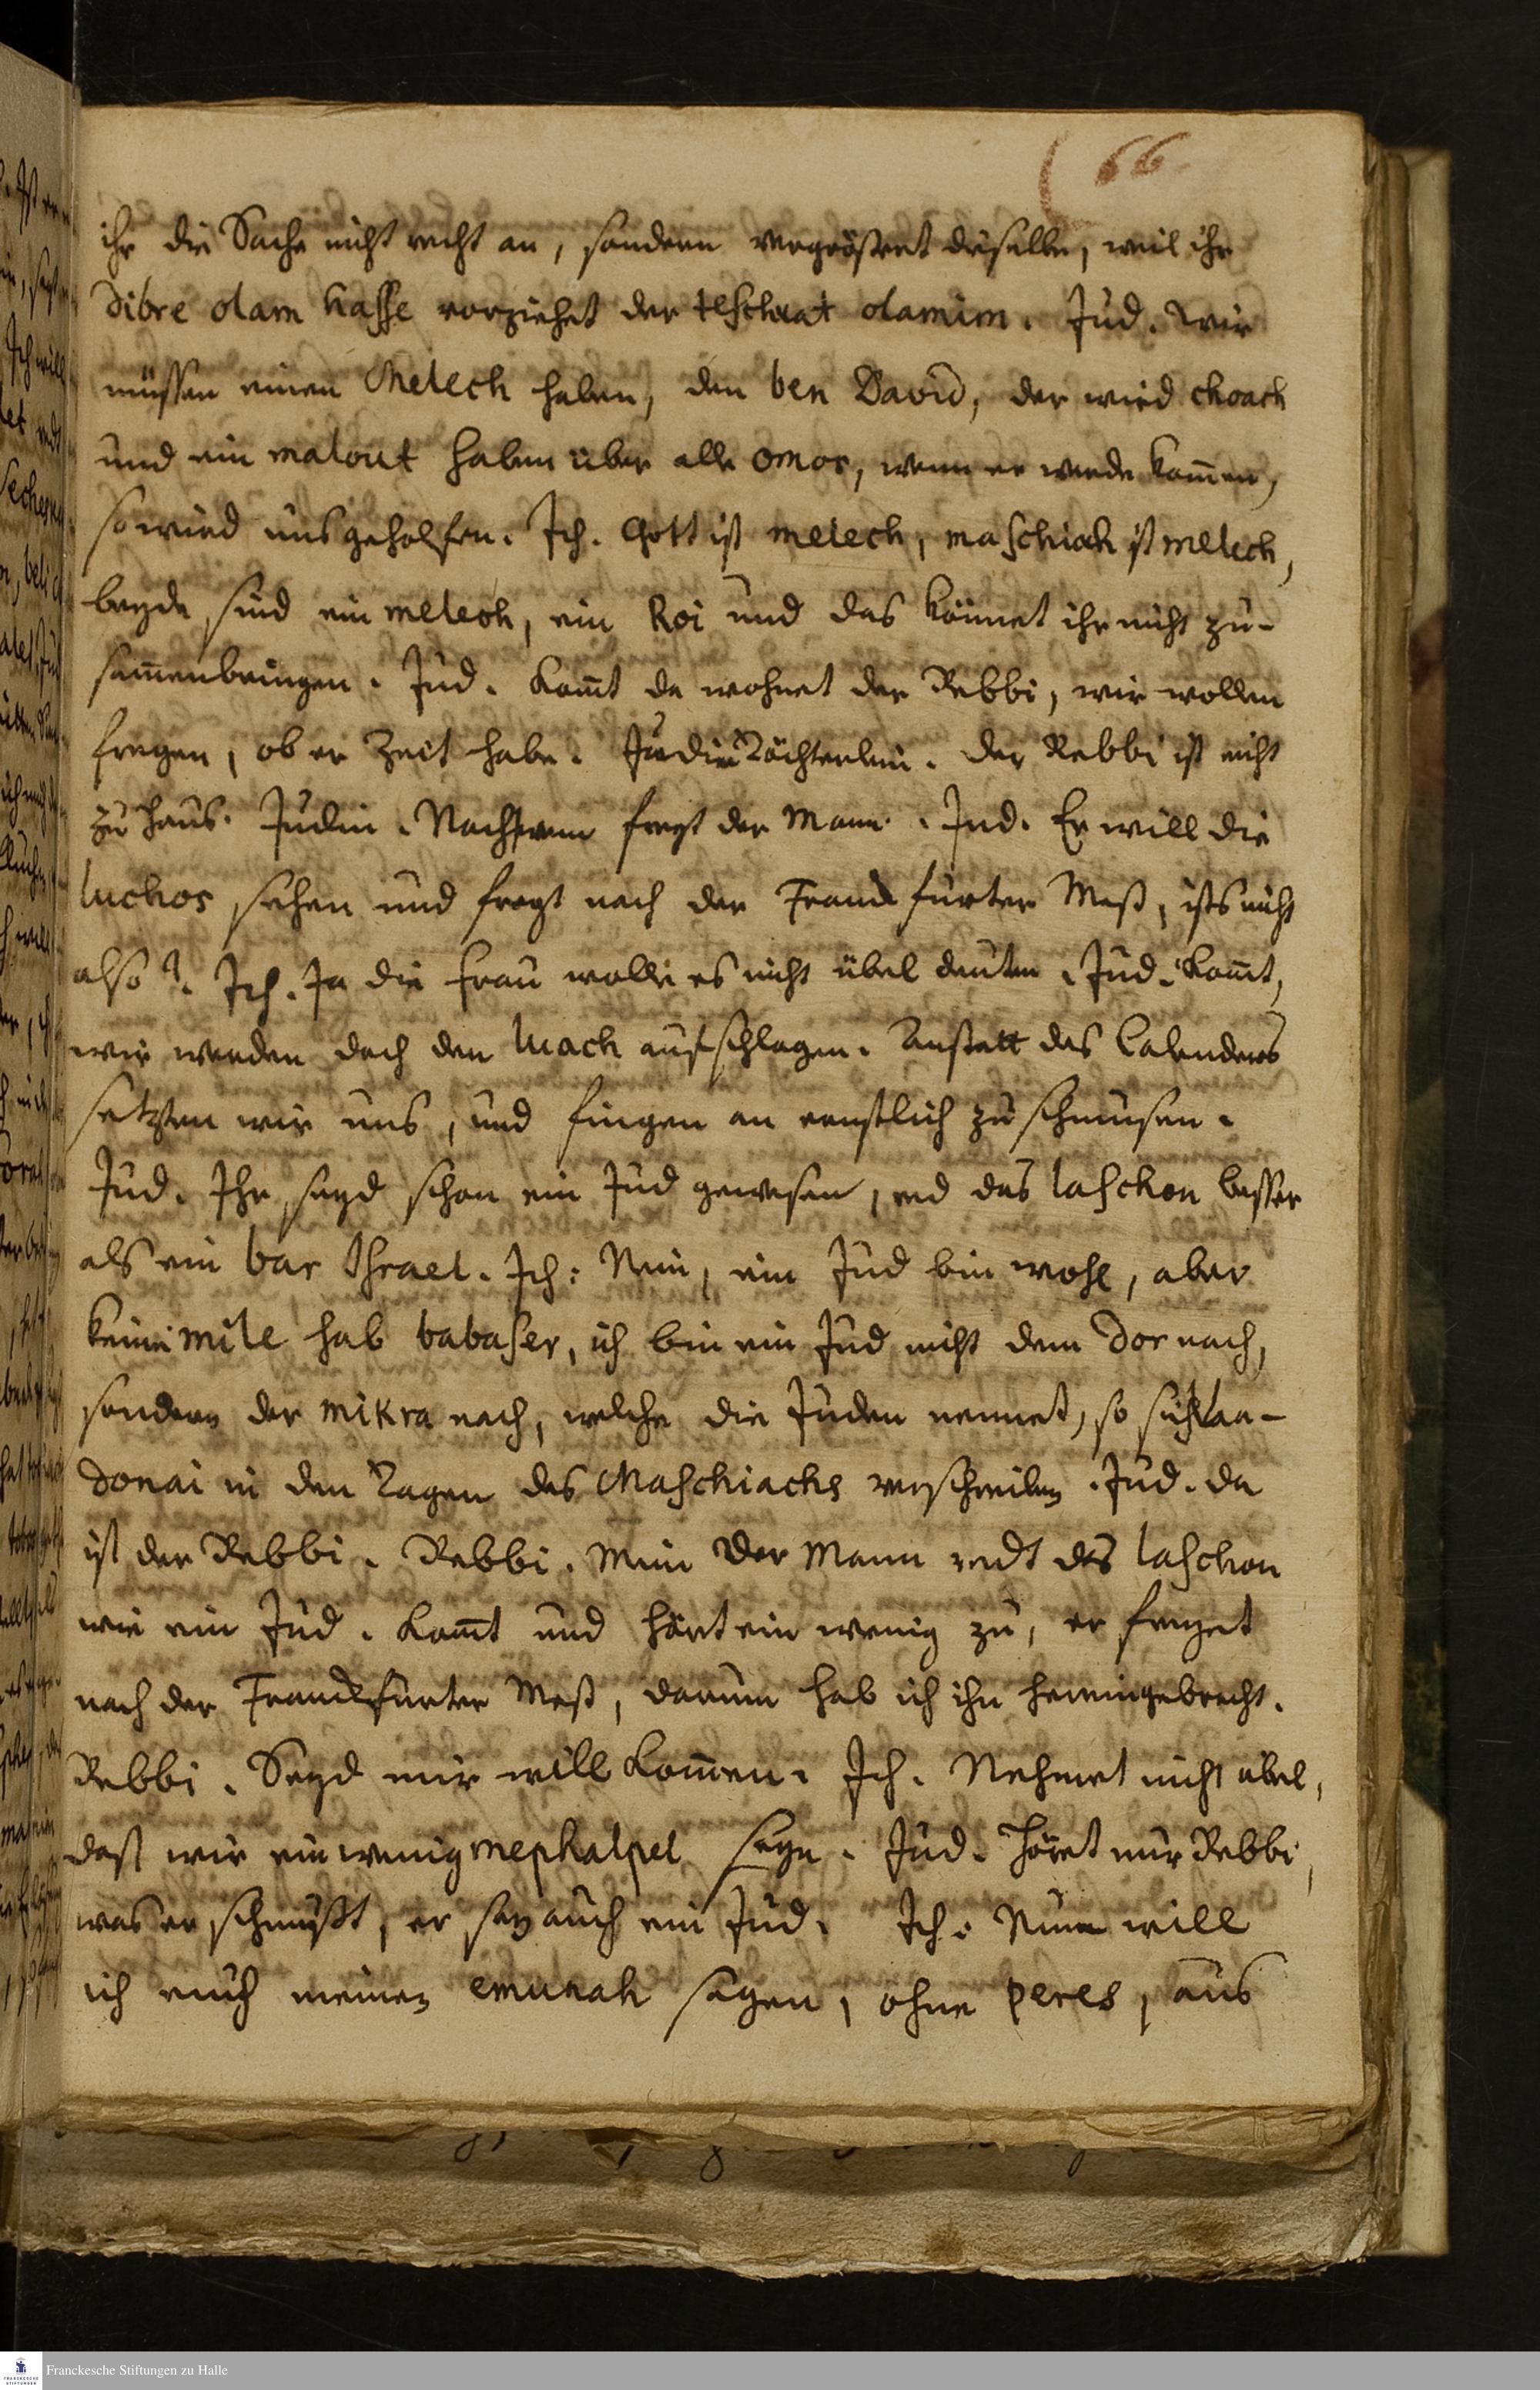 66
ihr die Sache nicht recht an, sondern vergrößert dieselbe, weil ihr
dibre olam hasse vorziehet der teschuat olamim. Jud. Wir
müssen einen Melech haben, den ben David, der wird choach
und ein malout haben über alle omos, wenn er werde kom̄en,
so wird uns geholfen. Ich. Gott ist melech, maschiach ist melech,
beyde sind ein melech, ein Roi und das könnet ihr nicht zu-
sam̄enbringen. Jud. Kom̄t da wohnet der Rebbi, wir wollen
fragen, ob er Zeit habe. Judin Töchterlein. Der Rebbi ist nicht
zu Haus. Judin. Nach wem fragt der Mann. Jud. Er will die
luchos sehen und fragt nach der Franckfurter Meß, ists nicht
also? Ich. Ja die Frau wolle es nicht übel deuten. Jud. Kom̄t,
wir werden doch den luach aufschlagen. Anstatt des Calenders
setzten wir uns, und fingen an ernstlich zu schmusen.
Jud. Ihr seyd schon ein Jud gewesen, red das laschon besser
als ein bar Israel. Ich: Nein, ein Jud bin wohl, aber
keine mile hab babaser, ich bin ein Jud nicht dem dor nach,
sondern der mikra nach, welche die Juden nennet, so sich laa-
donai in den Tagen des Maschiachs verschreiben. Jud. da
ist der Rebbi. Rebbi. Mein der Mann redt das laschon
wie ein Jud. Kom̄t und hört ein wenig zu, er fraget
nach der Franckfurter Meß, darum hab ich ihn hereingebracht.
Rebbi. Seyd mir willkom̄en. Ich. Nehmet nicht übel,
daß wir ein wenig mephalpel seyn. Jud. Höret nur Rebbi,
was er schmußt, er sey auch ein Jud. Ich: Nun will
ich euch meinen emunah sagen, ohne peres, aus
Franckesche Stiftungen zu Halle